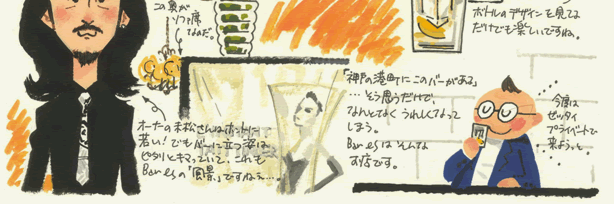 この奥が
ソファ席
なのだ。
ボトルのデザインを見てる
だけでも楽しいですね。
オーナーの末松さんはホントに
若い!でもバーに立つ姿は
ピタリとキマっていて、これも
Bar esの「風景」ですねえ…
「神戸の港町にこのバーがある」
…そう思うだけで、
なんとなく うれしくなって
しまう。
Bar esは そんな
お店です。
今度は
ゼッタイ
プライベートで
来ようっと